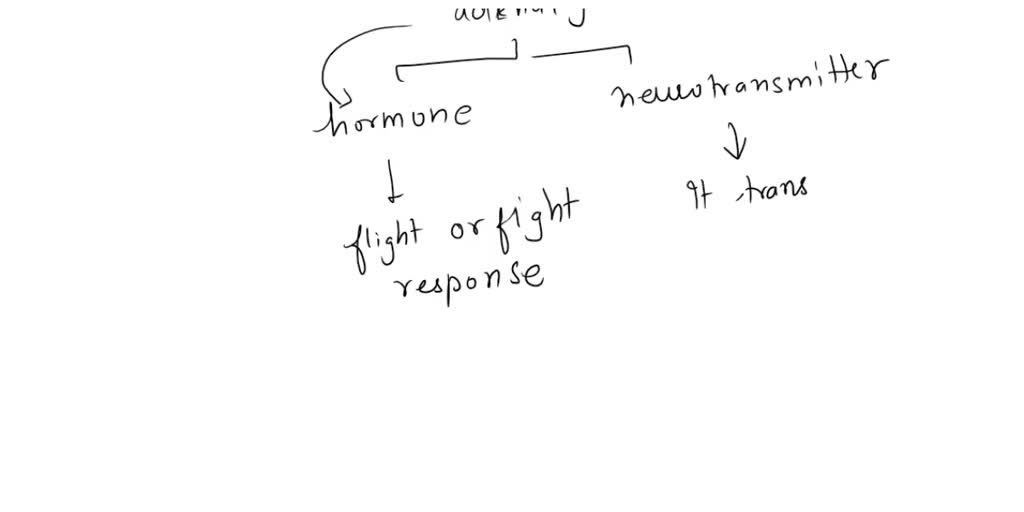 hormone
neurotransmitter
flight or fight
response
It trans